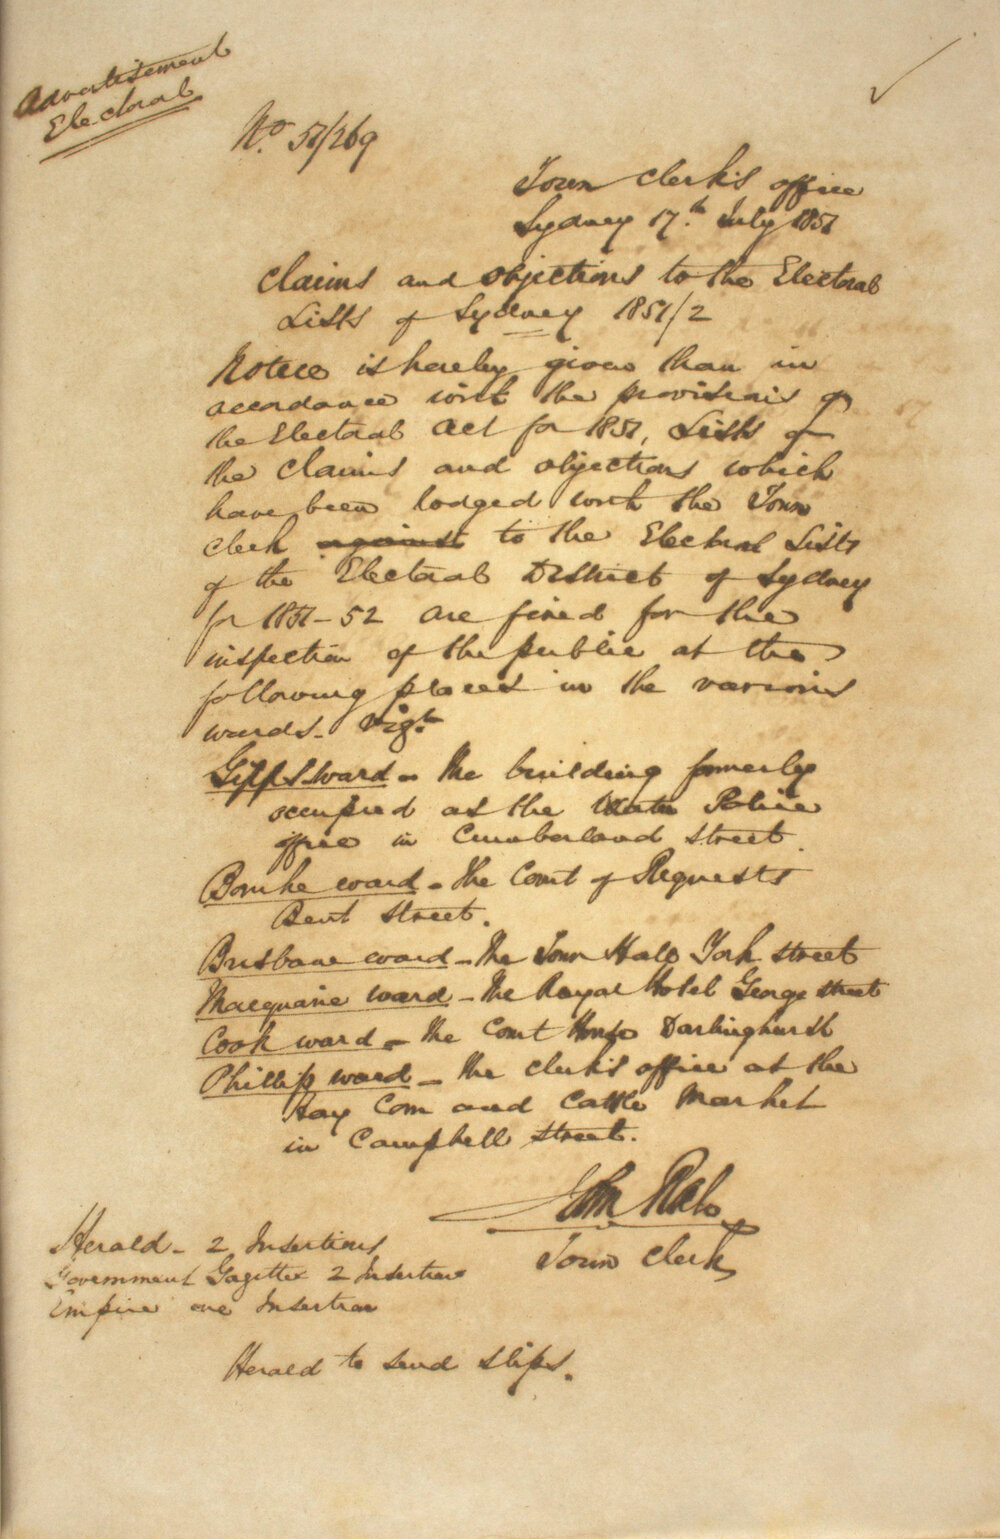 Advertisement
Electoral
No. 51/269
Town Clerk's office
Sydney 17th July 1851
Claims and objections to the Electoral
Lists of Sydney 1851/2
Notice is hereby given that in
accordance with the provisions of
the Electoral Act for 1851, Lists of
the Claims and objections which
have been lodged with the Town
Clerk against to the Electoral Lists
of the Electoral District of Sydney
for 1851-52 are fixed for the
inspection of the public at the
following places in the various
wards. Vizt
Gipps ward - the building formerly
occupied as the Water Police
office in Cumberland Street.
Bourke ward - the Court of Requests
Bent Street.
Brisbane ward - the Town Hall York street
Macquarie ward - the Royal Hotel George street
Cook ward - the Court House Darlinghurst
Phillip ward - the clerk's office at the
Hay Corn and Cattle Market
in Campbell street.
John
Town Clerk
Herald - 2 Insertions
Government Gazette 2 Insertions
Empire one Insertion
Herald to send slips.